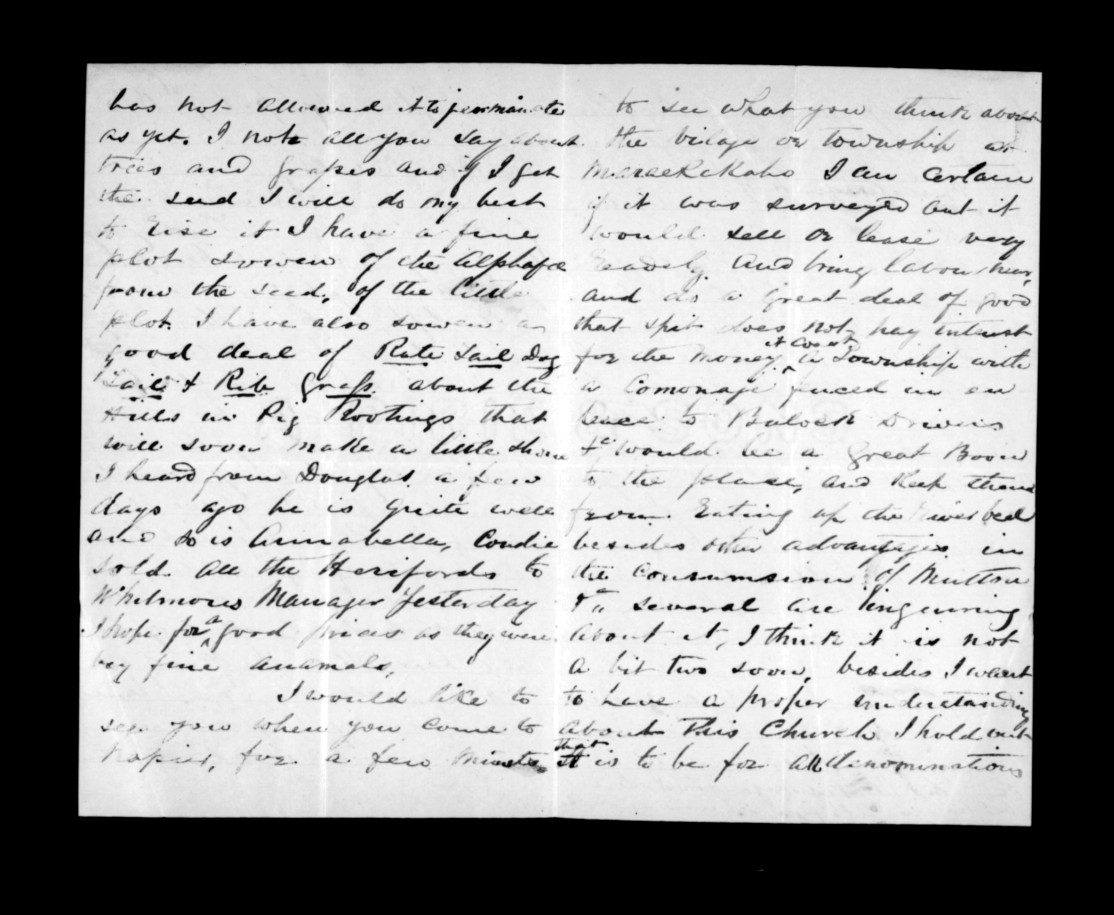 has not allowed it to germanate
as yet. I note all you say about
trees and grapes and if I get
the seed I will do my best
to rise it I have a fine
plot sowen of the Alphafa
from the seed, of the little
plot. I have also sowen a
good deal of Rats Tail Dog
Tail & Rib grass about the
Hills in Pig Rootings that
will soon make a little show
I heard from Douglas a few
days ago he is quite well
and so is Annabella, Condie
sold all the Herifords to
Whitmores Manager Yesterday
I hope for a good prices as they were
very fine anamals,
I would like to
see you when you come to
Napier, for a few minets
to see what you think about
the vilage or township at
Maraekakaho I am certain
if it was surveyed out it
would sell or lease very
readely and bring labour here,
and do a great deal of good
that spit does not pay intrest
for the money it cost, a Township with
a Comonage fenced in on
lease to Bulock Drivers
&c would be a great Boon
to the place, and keep them
from Eating up the riverbed
besides other advantages in
the Consumsion of Mutton
&c several are Enquiring
about it, I think it is not
a bit two soon, besides I want
to have a proper understanding
about This Church I hold out
that it is to be for all denominations